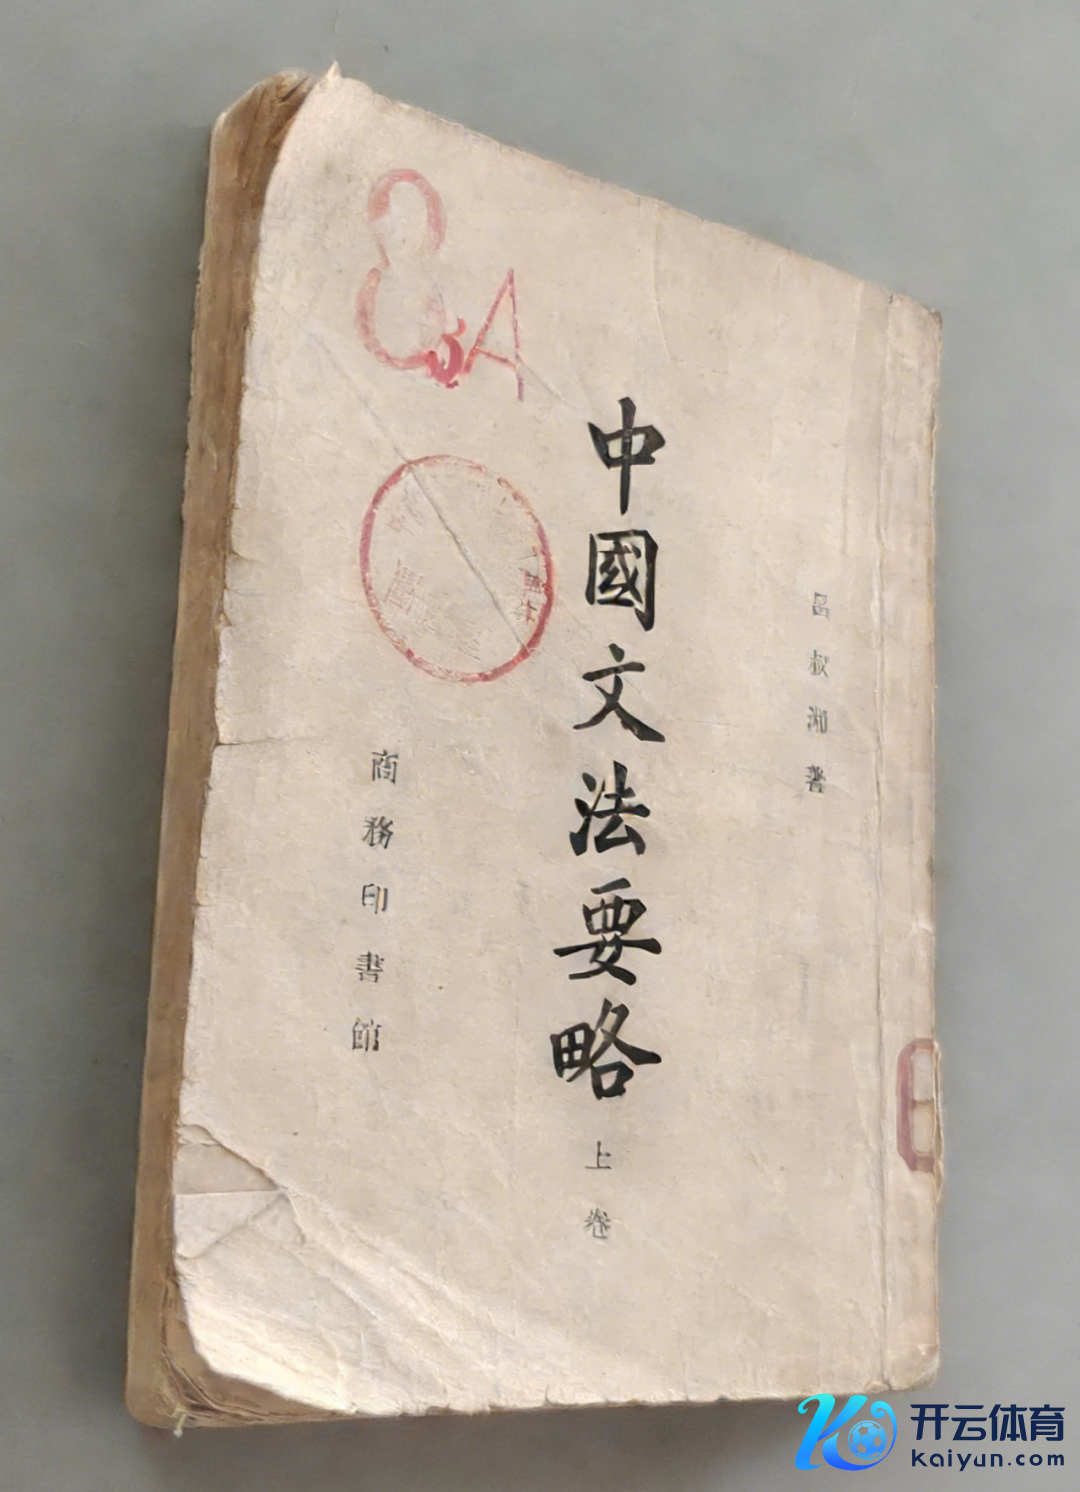 呂叔湘著
中國文法要略
上卷
商務印書館
8A
开云体育
kaiyun.com